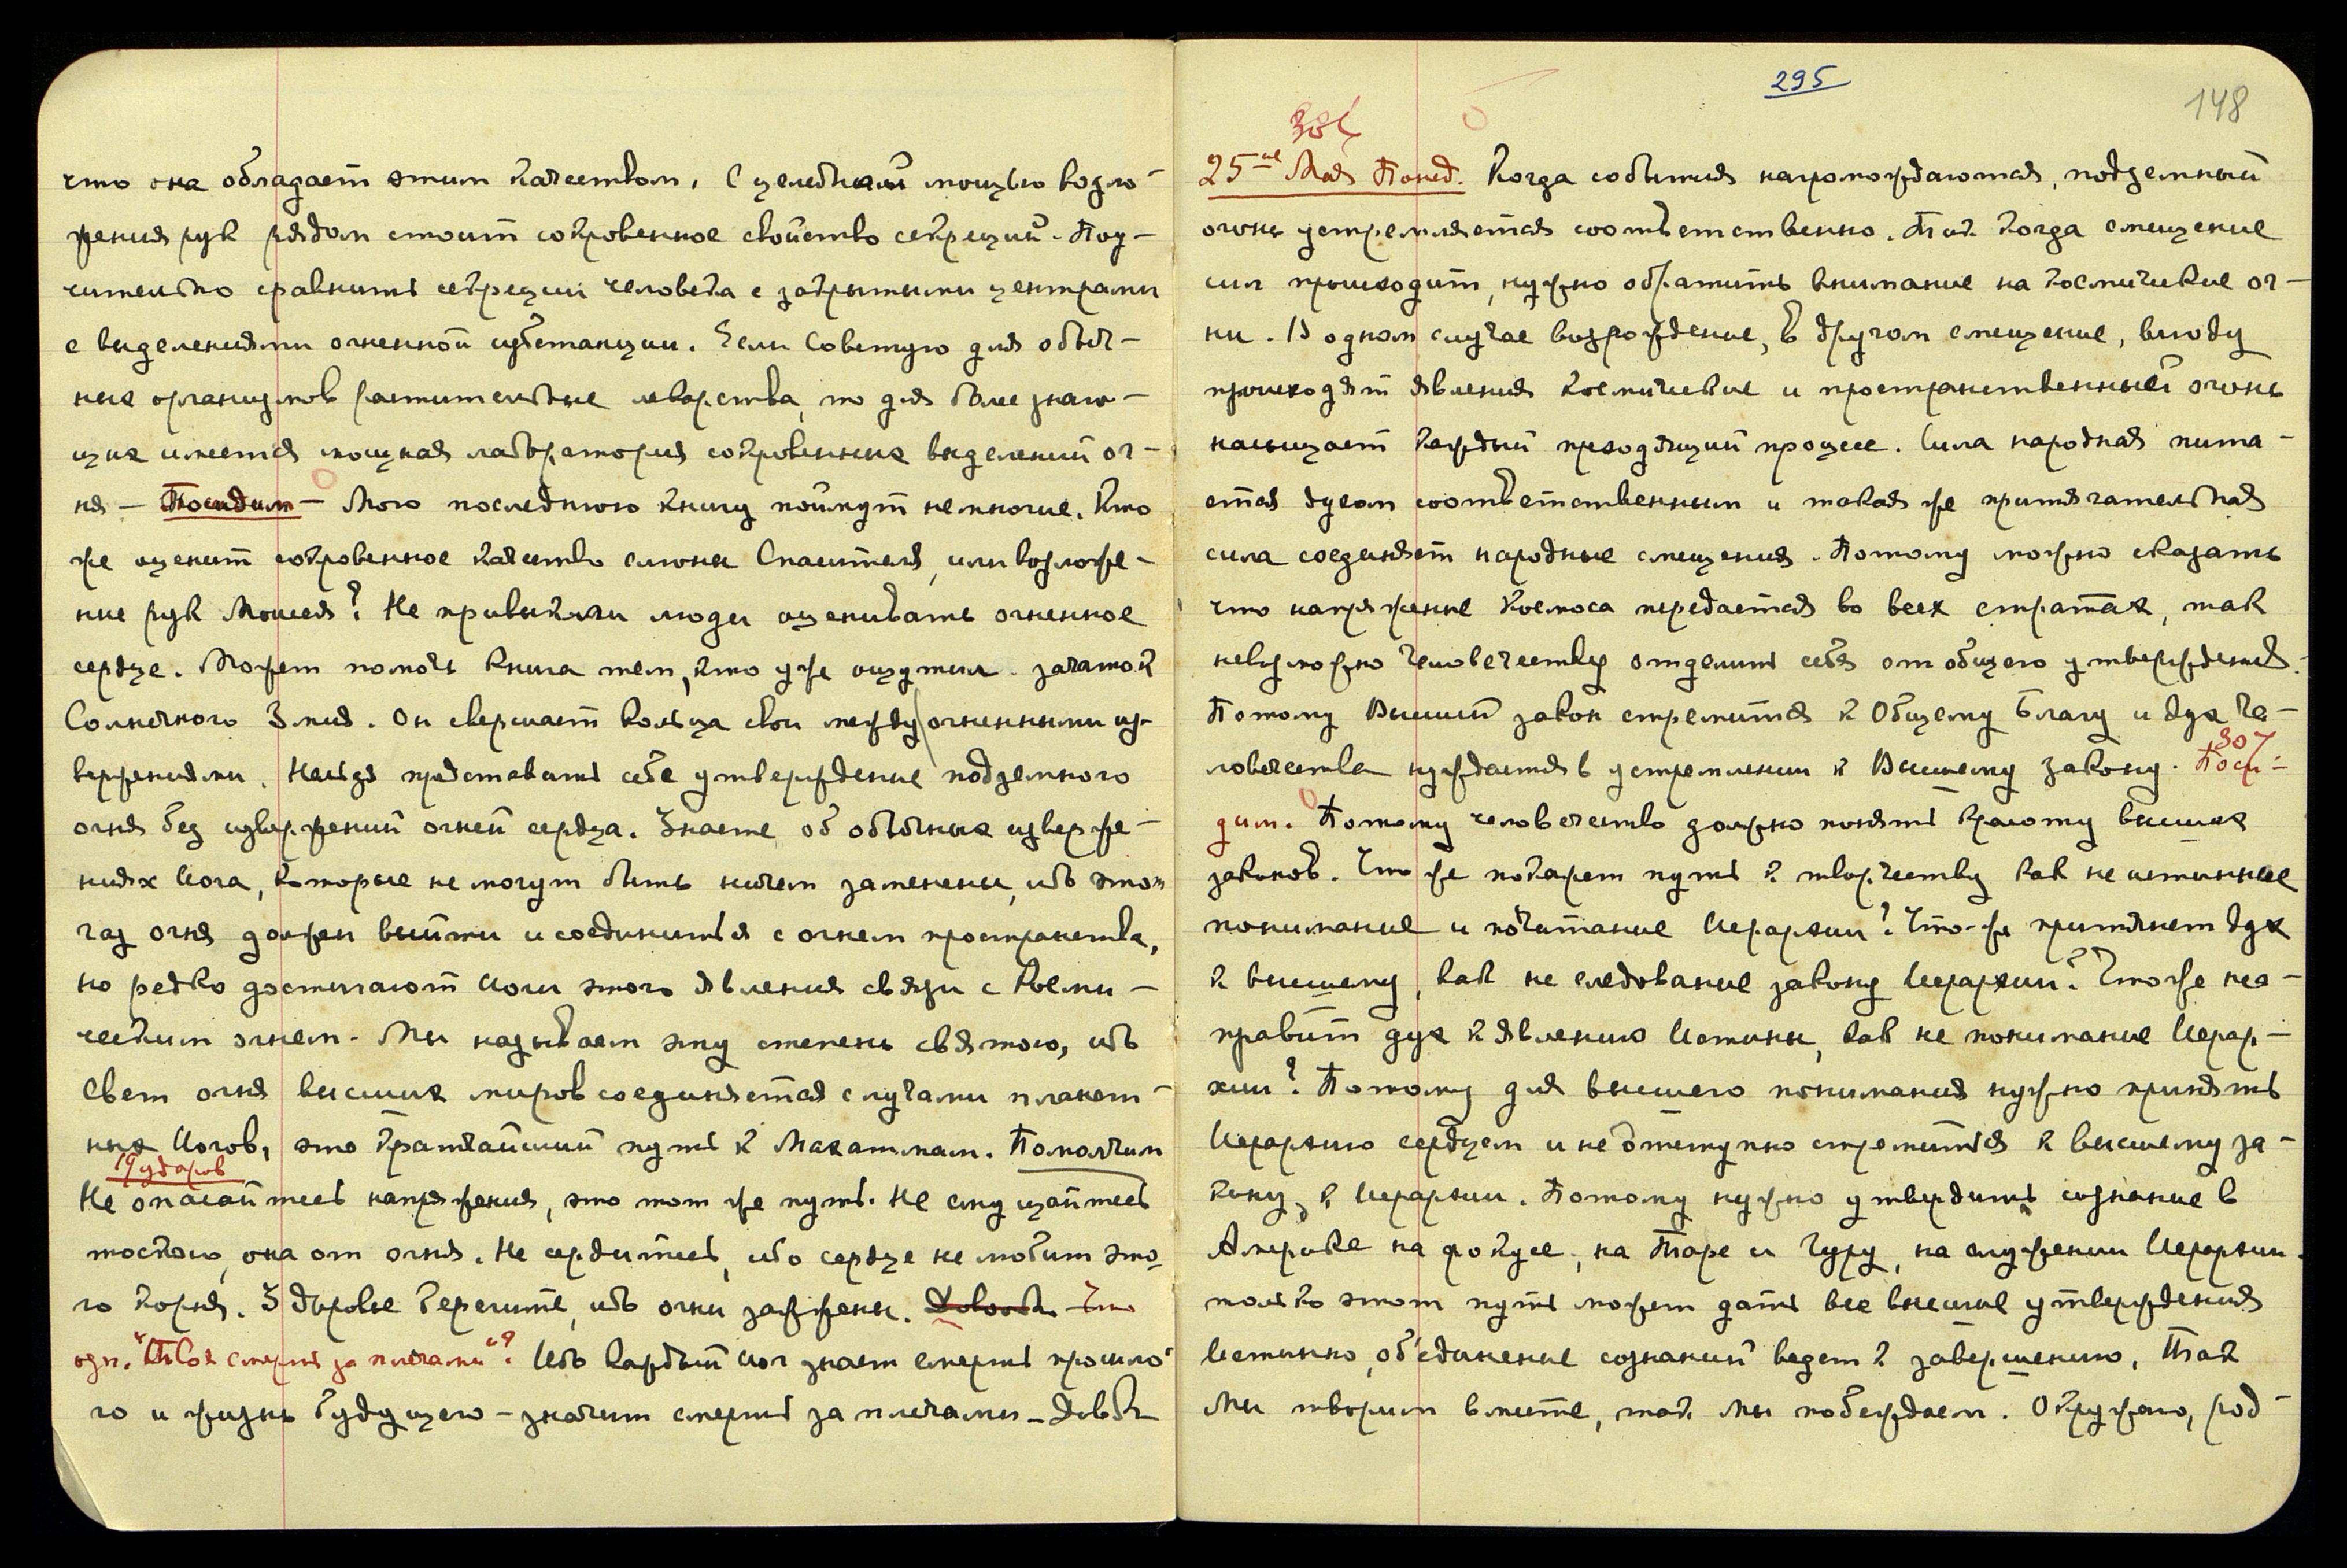 что она обладает этим качеством. С целебной мощью возло-
жения рук рядом стоит сокровенное свойство секреций. Поу-
чительно сравнить секреции человека с закрытыми центрами
с выделениями огненной субстанции. Если Советую для обыч-
ных организмов растительные лекарства, то для более знаю-
щих имеется мощная лаборатория сокровенных выделений ог-
ня — Посидим — Мою последнюю книгу поймут немногие. Кто
же оценит сокровенное качество слюны Спасителя, или возложе-
ние рук Моисея? Не привыкли люди оценивать огненное
сердце. Может помочь книга тем, кто уже ощутил зачаток
Солнечного Змия. Он свершает кольца свои между огненными из-
вержениями. Нельзя представить себе утверждение подземного
огня без извержений огней сердца. Знаете об обычных изверже-
ниях Иога, которые не могут быть ничем заменены, ибо этот
газ огня должен выйти и соединиться с огнем пространства,
но редко достигают Иоги этого явления связи с Косми-
ческим огнем. Мы называем эту степень святою, ибо
Свет огня высших миров соединяется с лучами планет-
ных Иогов, это кратчайший путь к Махатмам. Помолчим
19 ударов
Не опасайтесь напряжения, это тот же путь. Не смущайтесь
тоскою, она от огня. Не сердитесь, ибо сердце не любит это-
го корня. Здоровье берегите, ибо огни зажжены. Довольно Что
озн. "Твоя смерть за плечами"? Ибо каждый Иог знает смерть прошло-
го и жизнь будущего — значит смерть за плечами — Довольно
295
148
306
25-ое Мая Понед. Когда события нагромождаются, подземный
огонь устремляется соответственно. Так когда смещение
сил происходит, нужно обратить внимание на космические ог-
ни. В одном случае возрождение, в другом смещение, всюду
происходят явления космические и пространственный огонь
насыщает каждый преходящий процесс. Сила народная пита-
ется духом соответственным и такая же притягательная
сила соединяет народные смещения. Потому можно сказать
что напряжение Космоса передается во всех стратах, так
невозможно Человечеству отделить себя от общего утверждения.
Потому Высший закон стремится к Общему Благу и дух че-
ловечества нуждается в устремлении к Высшему Закону. Поси-
307
дим. Потому человечество должно понять красоту высших
законов. Что же покажет путь к творчеству как не истинное
понимание и почитание Иерархии? Что-же притянет дух
к высшему, как не следование закону Иерархии? Что же нап-
правит дух к явлению Истины, как не понимание Иерар-
хии? Потому для высшего понимания нужно принять
Иерархию сердцем и неотступно стремиться к высшему за-
кону, к Иерархии. Потому нужно утвердить сознание в
Америке на фокусе, на Таре и Гуру, на служении Иерархии.
только этот путь может дать все высшие утверждения
Истинно, об'единение сознаний ведет к завершению. Так
Мы творим вместе, так Мы побеждаем. Окружаю, род-